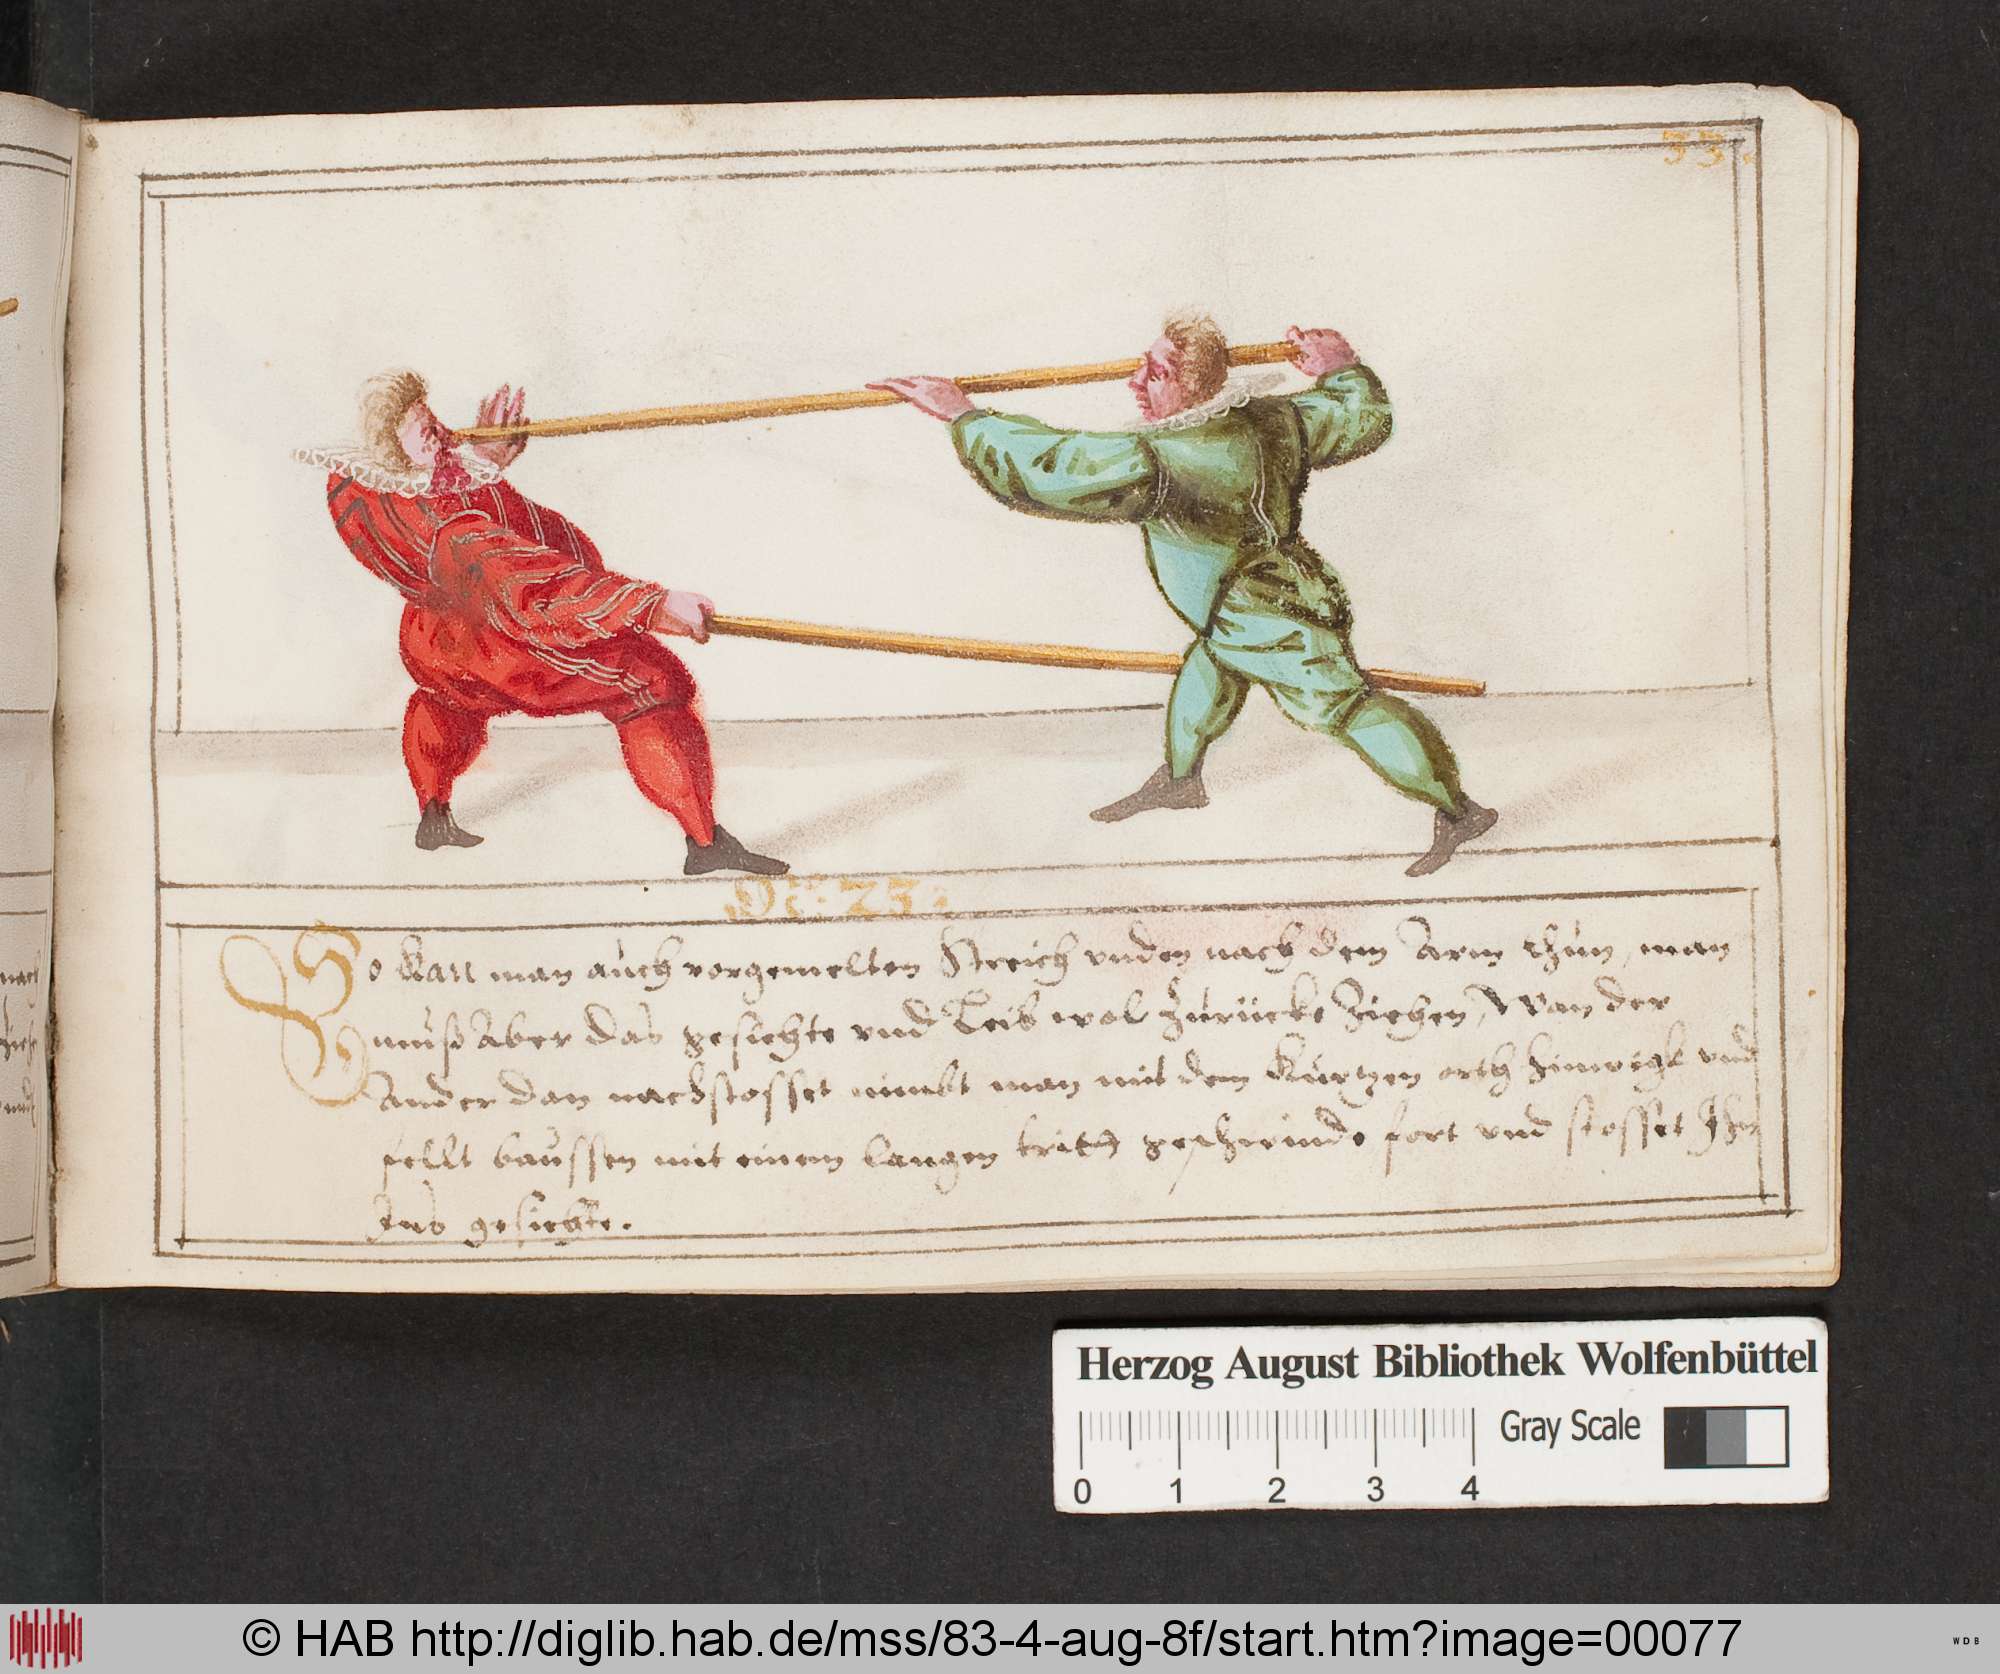 33.
Nr: 23:
So kan man auch vorgemelten Streich unden nach dem Arm thun, man
muß Aber das gesichte und Leib wol Zurücke Ziehen, Wan der
Ander dan nachstosset nimbt man mit dem kurtzen orth hinwegk und
fellt haussen mit einem langen tritt geschwinde fort und stosset Ihn
Ins gesichte.
nach
und
Herzog August Bibliothek Wolfenbüttel
Gray Scale
0 1 2 3 4
© HAB http://diglib.hab.de/mss/83-4-aug-8f/start.htm?image=00077
WDB